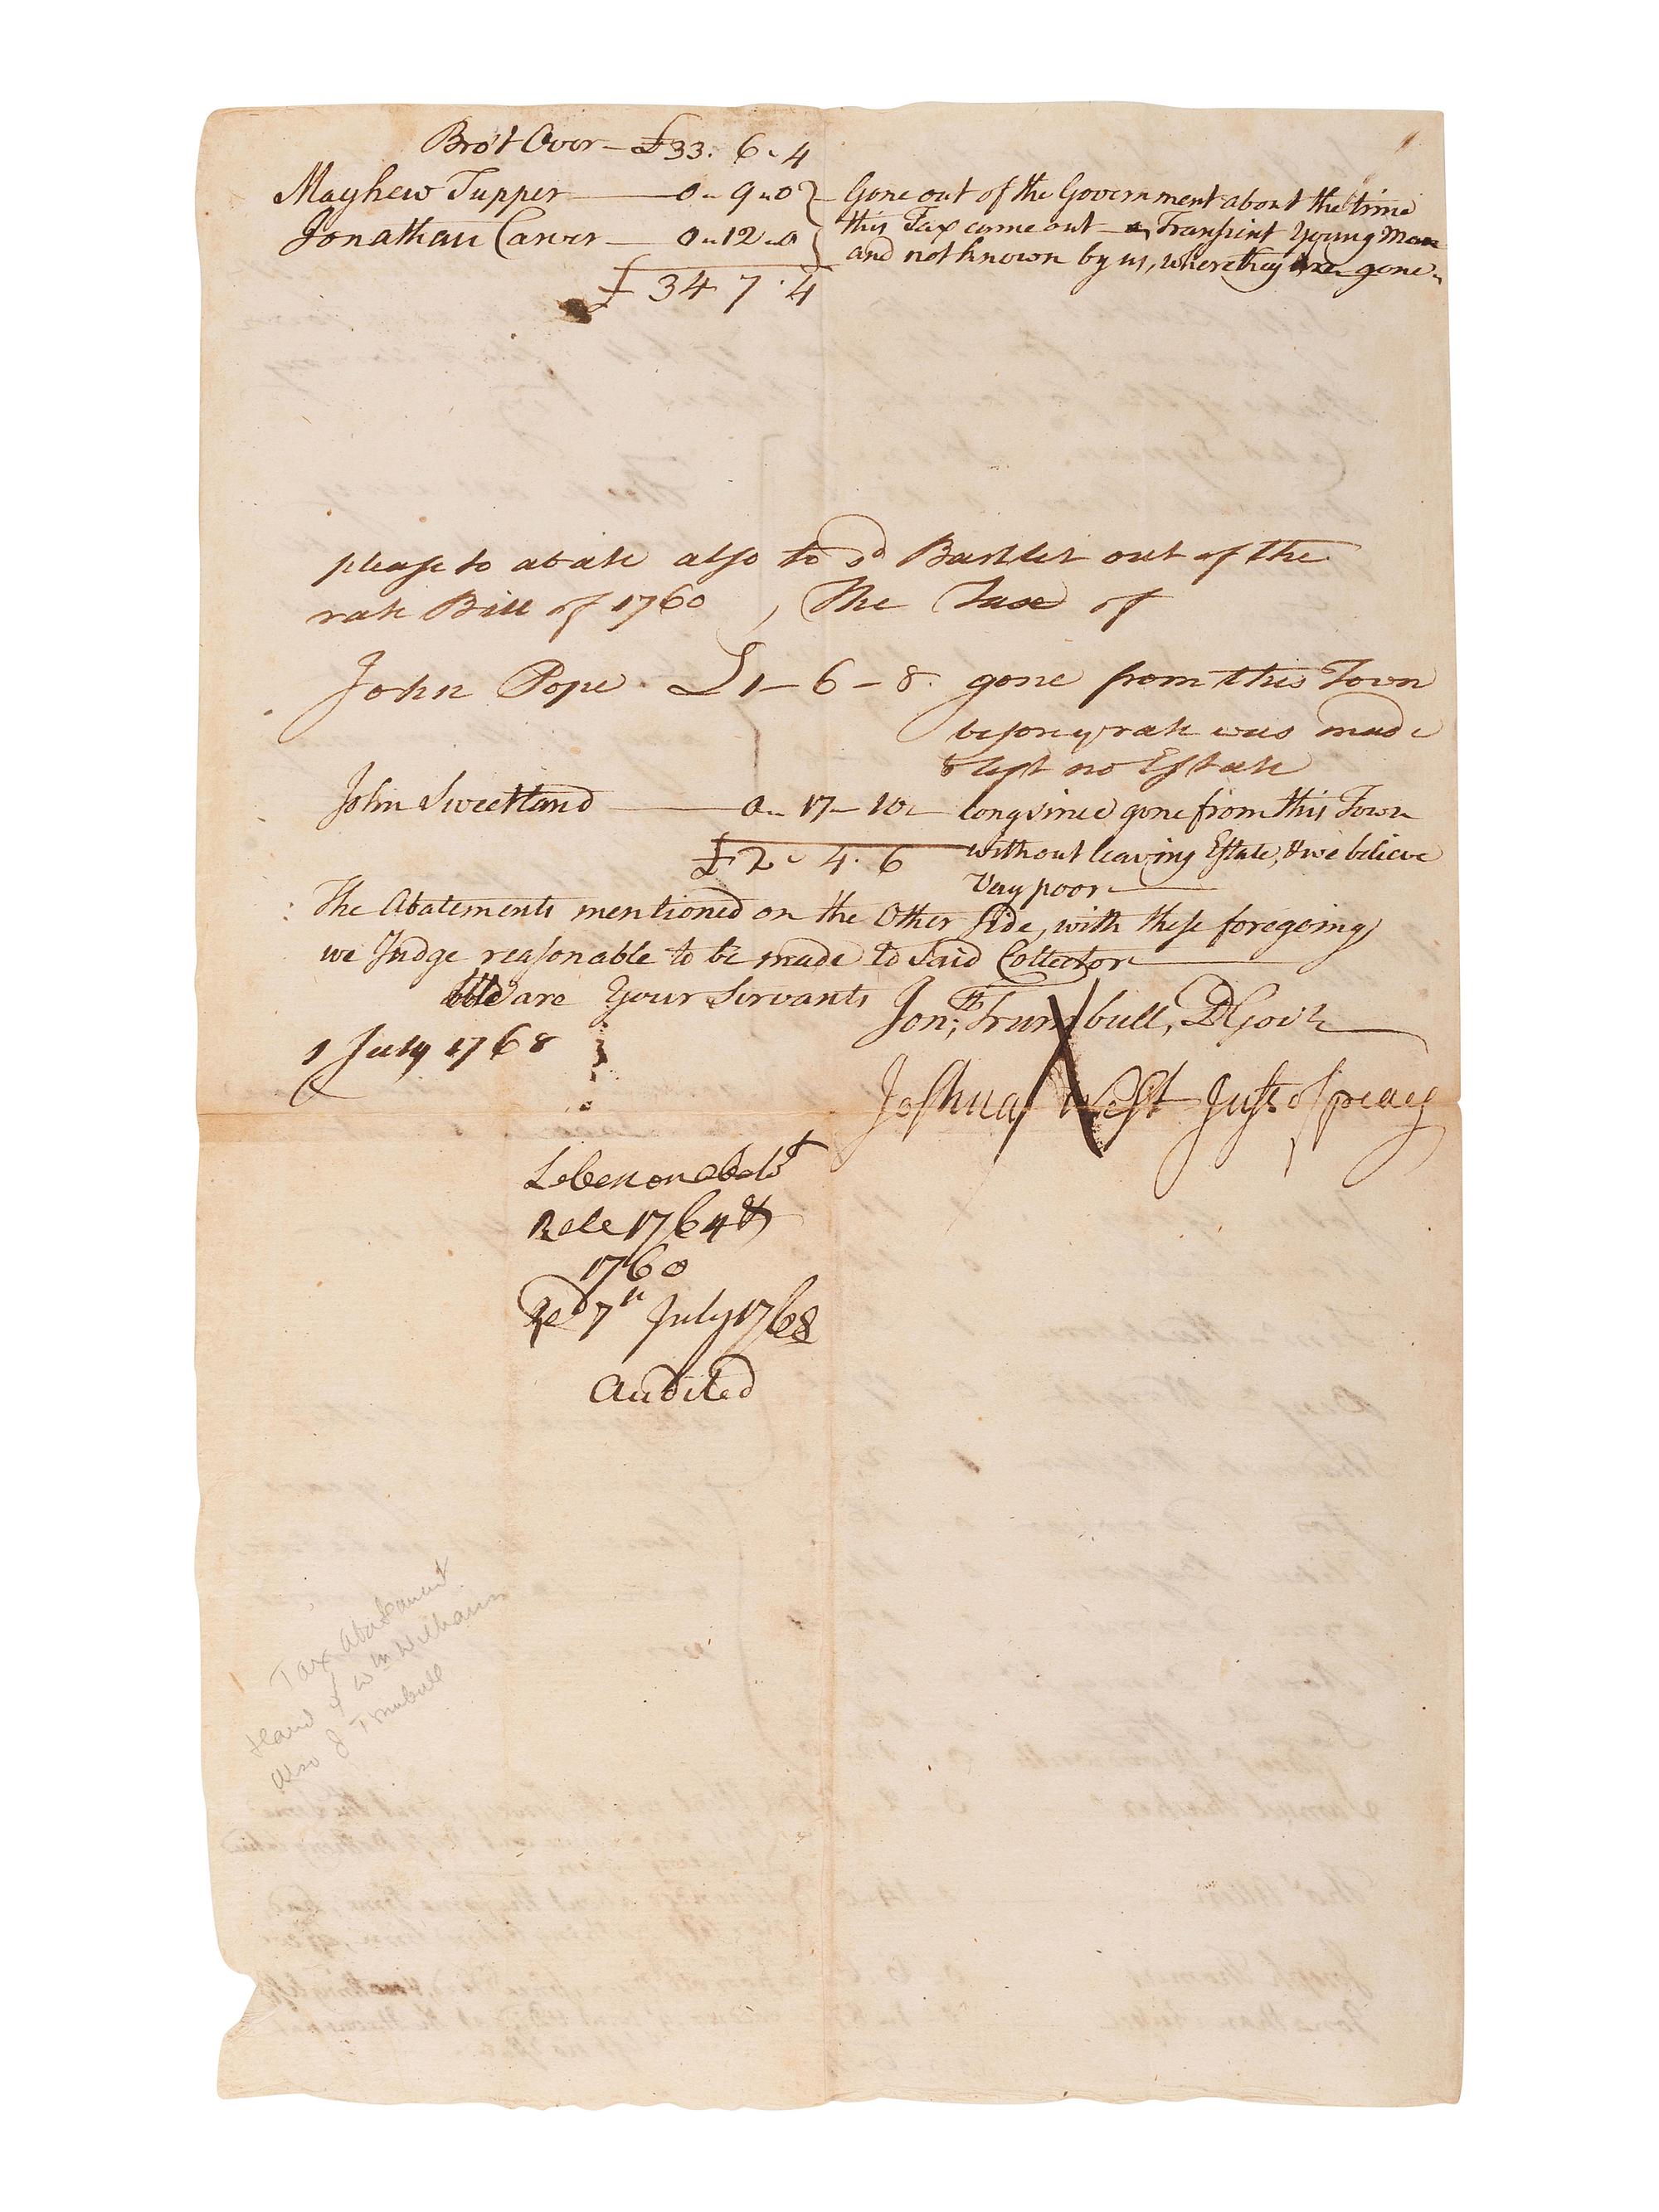 Bro't Over — £33. 6. 4
Mayhew Tupper — 0 .. 9 .. 0 } Gone out of the Government about the time
Jonathan Carver — 0 .. 12 .. 0 } this Tax came out — a Transient Young Man
and not known by us, where they are gone.
£ 34 7 . 4
please to abate also to sd Bartlet out of the
rate Bill of 1760, The Taxe of
John Pope . £1 – 6 – 8 . gone from this Town
before ye rate was made
& left no Estate
John Sweetland — 0 .. 17 – 10 – long since gone from this Town
£ 2 . 4 . 6 without leaving Estate, & we believe
Very poor —
The Abatements mentioned on the Other side, with these foregoing
we Judge reasonable to be made to said Collector —
We are Your Servants
Jonth; Trumbull, DGovr
1 July 1768
Joshua West Just of peace
Lebanon abatt
Rate 1764 &
1760
Recd 7th July 1768
Audited
Tax abatement
Hand of Wm Williams
also of Trumbull